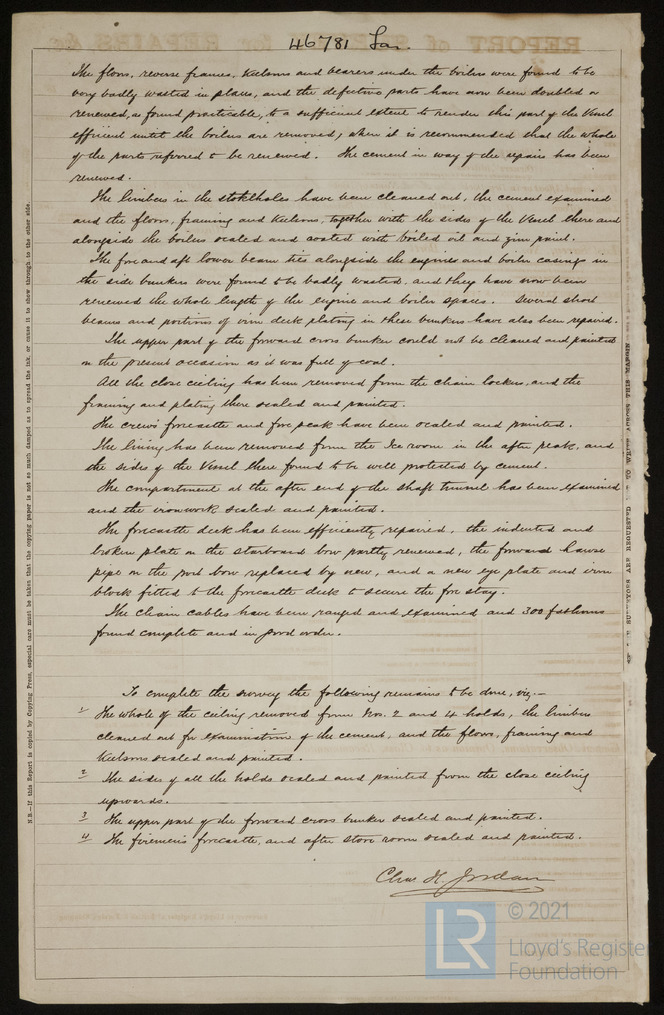 46781 Lon.
The floors, reverse frames, keelsons and bearers under the boilers were found to be
very badly wasted in places, and the defective parts have now been doubled or
renewed, as found practicable, to a sufficient extent to render this part of the Vessel
efficient until the boilers are removed, when it is recommended that the whole
of the parts referred to be renewed. The cement in way of the repairs has been
renewed.
The limbers in the stokeholes have been cleaned out, the cement examined
and the floors, framing and keelsons, together with the sides of the Vessel there and
alongside the boilers scaled and coated with boiled oil and zinc paint.
The fore and aft lower beam ties alongside the engines and boiler casings in
the side bunkers were found to be badly wasted, and they have now been
renewed the whole length of the engine and boiler spaces. Several short
beams and portions of iron deck plating in these bunkers have also been repaired.
The upper part of the forward cross bunker could not be cleaned and painted
on the present occasion as it was full of coal.
All the close ceiling has been removed from the chain lockers, and the
framing and plating there scaled and painted.
The crew's forecastle and fore peak have been scaled and painted.
The lining has been removed from the Ice room in the after peak, and
the sides of the Vessel there found to be well protected by cement.
The compartment at the after end of the shaft tunnel has been examined
and the ironwork scaled and painted.
The forecastle deck has been efficiently repaired, the indented and
broken plate on the starboard bow partly renewed, the forward hawse
pipe on the port bow replaced by new, and a new eye plate and iron
block fitted to the forecastle deck to secure the fore stay.
The chain cables have been ranged and examined and 300 fathoms
found complete and in good order.
To complete the survey the following remains to be done, viz:-
1 The whole of the ceiling removed from Nos. 2 and 4 holds, the limbers
cleaned out for examination of the cement, and the floors, framing and
keelsons scaled and painted.
2 The sides of all the holds scaled and painted from the close ceiling
upwards.
3 The upper part of the forward cross bunker scaled and painted.
4 The firemen's forecastle, and after store room scaled and painted.
Chas. H. Jordan
N.B.—If this Report is copied by Copying Press, especial care must be taken that the copying paper is not so much damped as to spread the ink, or cause it to show through to the other side.
© 2021
LR
Lloyd's Register
Foundation